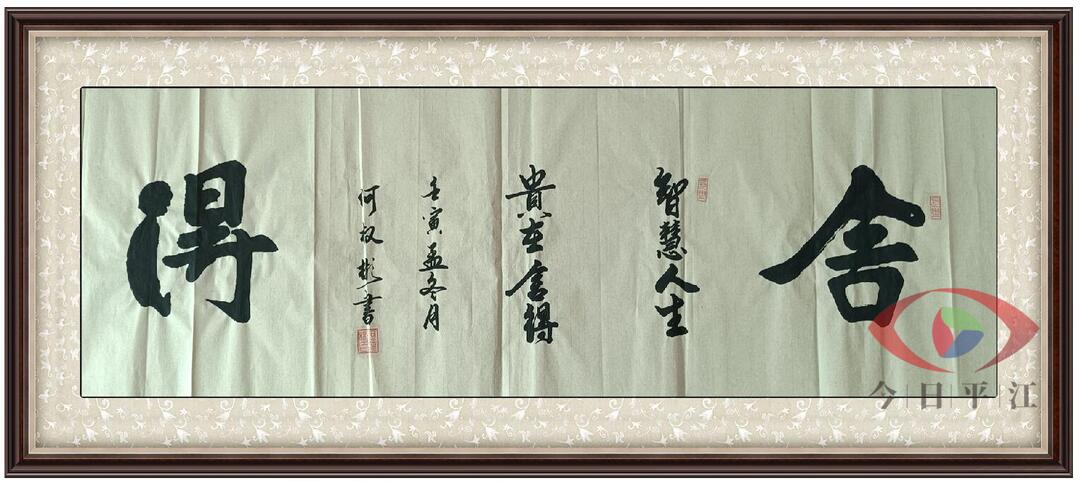 舍
智慧人生
貴在舍得
壬寅孟冬月
何权彬書
得
今日平江